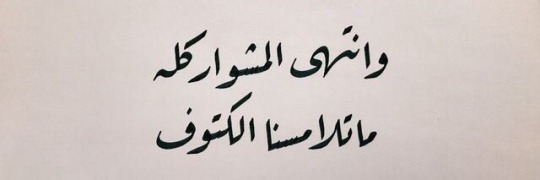 وانتهى المشوار كله
ماتلامسنا الكتوف